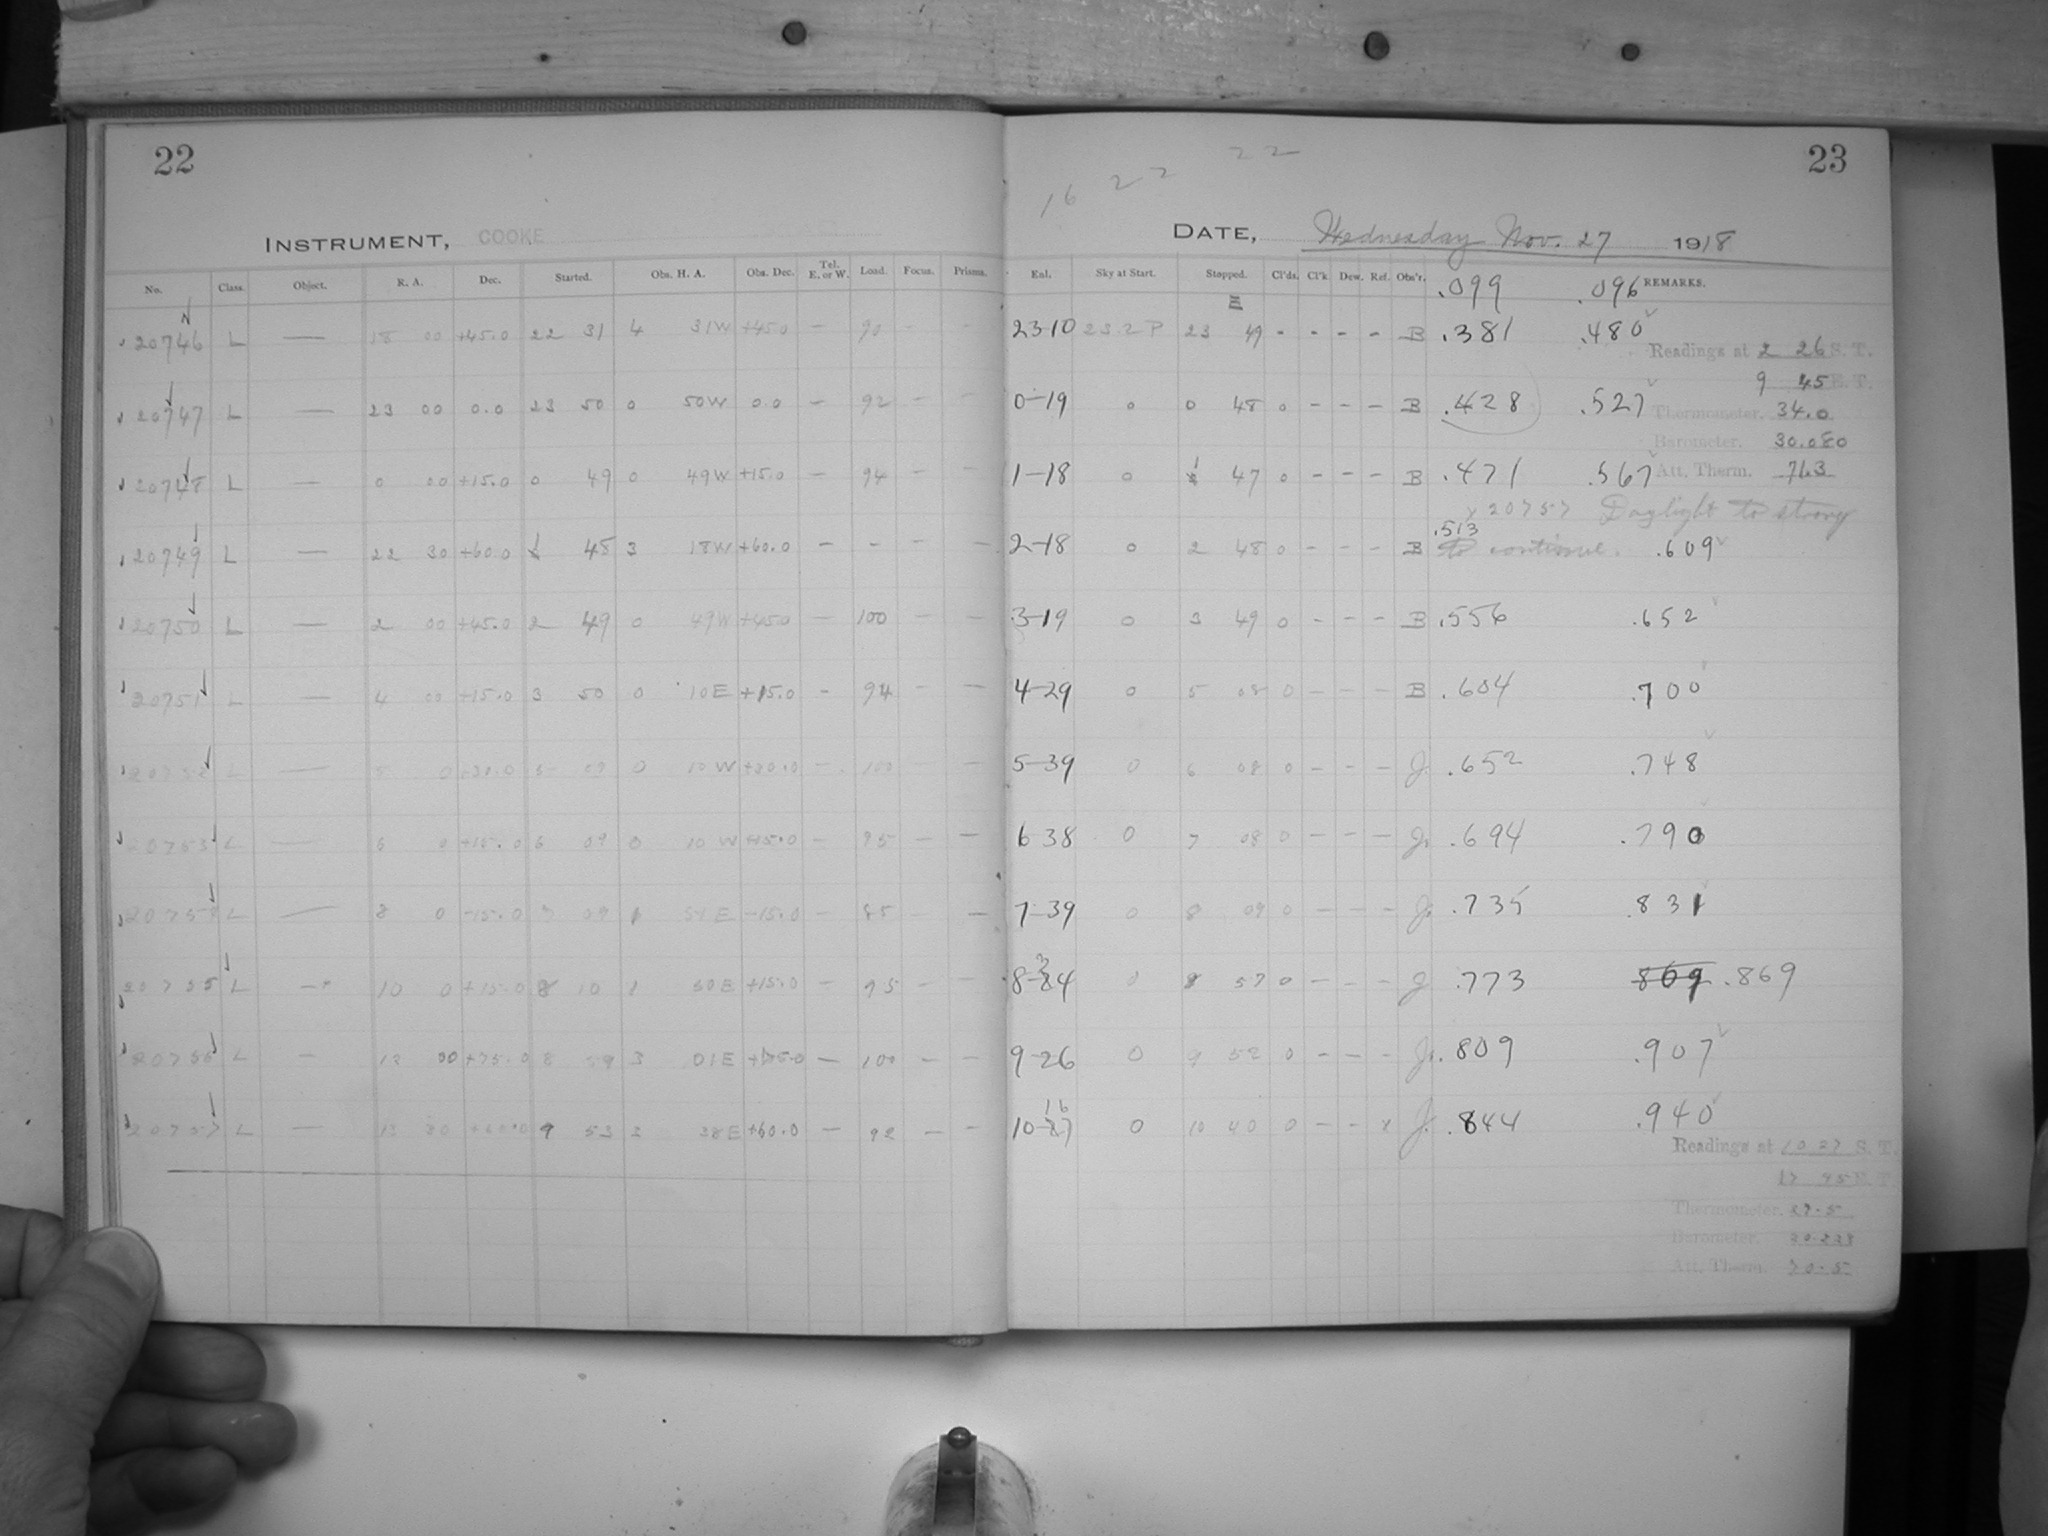 22
INSTRUMENT, COOKE
No. Class. Object. R. A. Dec. Started. Obs. H. A. Obs. Dec. Tel. E. or W. Load. Focus. Prisms.
N
20746 L — 18 00 +45.0 22 31 4 31W +45.0 — 90 — —
20747 L — 23 00 0.0 23 50 0 50W 0.0 — 92 — —
20748 L — 0 00 +15.0 0 49 0 49W +15.0 — 94 — —
20749 L — 22 30 +60.0 1 48 3 18W +60.0 — - - —
20750 L — 2 00 +45.0 2 49 0 49W +45.0 — 100 — —
20751 L — 4 00 +15.0 3 50 0 10E +15.0 - 94 — —
20752 L — 5 0 +30.0 5 09 0 10 W +30.0 — 100 — —
20753 L — 6 0 +15.0 6 09 0 10 W +15.0 — 95 — —
L — 8 0 -15.0 7 09 E -15.0 — 85 — —
20755 L — 10 0 +15.0 8 10 1 50E +15.0 — 95 — —
20756 L — 12 00 +75.0 8 59 3 01E +75.0 — 100 — —
20757 L — 13 30 +60.0 9 53 3 38E +60.0 — 92 — —
16 22 22
23
DATE, Wednesday Nov. 27 1918
Enl. Sky at Start. Stopped. Cl'ds. Cl'k Dew. Ref. Obs'r. .099 .096 REMARKS.
23-10 23.2 P 23 49 - - - - B .381 .480
Readings at 2 26 S. T.
9 45 E. T.
0-19 0 0 48 0 - - - B .428 .527
Thermometer. 34.0
Barometer. 30.080
1-18 0 1 47 0 - - - B .471 .567 Att. Therm. 71.3
20757 Daylight to strong
.513
2-18 0 2 48 0 - - - B to continue. .609
3-19 0 3 49 0 - - - B .556 .652
4-29 0 5 08 0 - - - B .604 .700
5-39 0 6 08 0 - - - J. .652 .748
6 38 0 7 08 0 - - - J. .694 .790
7-39 0 8 09 0 - - - J. .735 .831
3
8-84 0 8 57 0 - - - J .773 869 .869
9-26 0 9 52 0 - - - J. .809 .907
16
10-27 0 10 40 0 - - x J. .844 .940
Readings at 10 27 S. T.
17 45 E. T.
Thermometer. 27.5
Barometer. 30.238
Att. Therm. 70.5